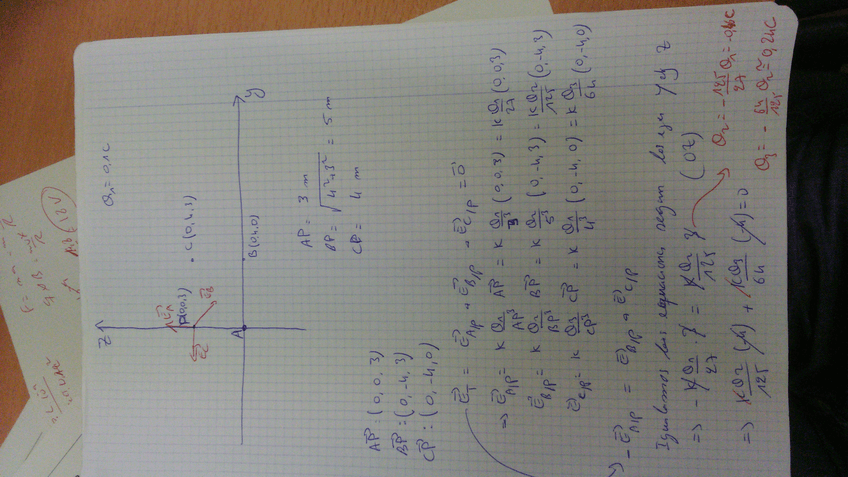 Q₁ = 0,1C
z
P(0,0,3)
E⃗_A
E⃗_B
E⃗_C
C(0,4,3)
A
B(0,4,0)
y
AP = 3 m
BP = √(4²+3²) = 5 m
CP = 4 m
AP⃗ : (0, 0, 3)
BP⃗ : (0, -4, 3)
CP⃗ : (0, -4, 0)
E⃗_T = E⃗_A/P + E⃗_B/P + E⃗_C/P = 0⃗
⇒ E⃗_A/P = K Q₁/AP³ AP⃗ = K Q₁/3³ (0,0,3) = K Q₁/27 (0,0,3)
E⃗_B/P = K Q₂/BP³ BP⃗ = K Q₂/5³ (0,-4,3) = K Q₂/125 (0,-4,3)
E⃗_C/P = K Q₃/CP³ CP⃗ = K Q₃/4³ (0,-4,0) = K Q₃/64 (0,-4,0)
- E⃗_A/P = E⃗_B/P + E⃗_C/P
Igualamos las equaciones según los ejes Y y Z
⇒ - K Q₁/27 · 3 = K Q₂/125 3 (OZ)
Q₂ = - 125/27 Q₁ = -0,46C
⇒ K Q₂/125 (-4) + K Q₃/64 (-4) = 0
Q₃ = - 64/125 Q₂ ≈ 0,24C